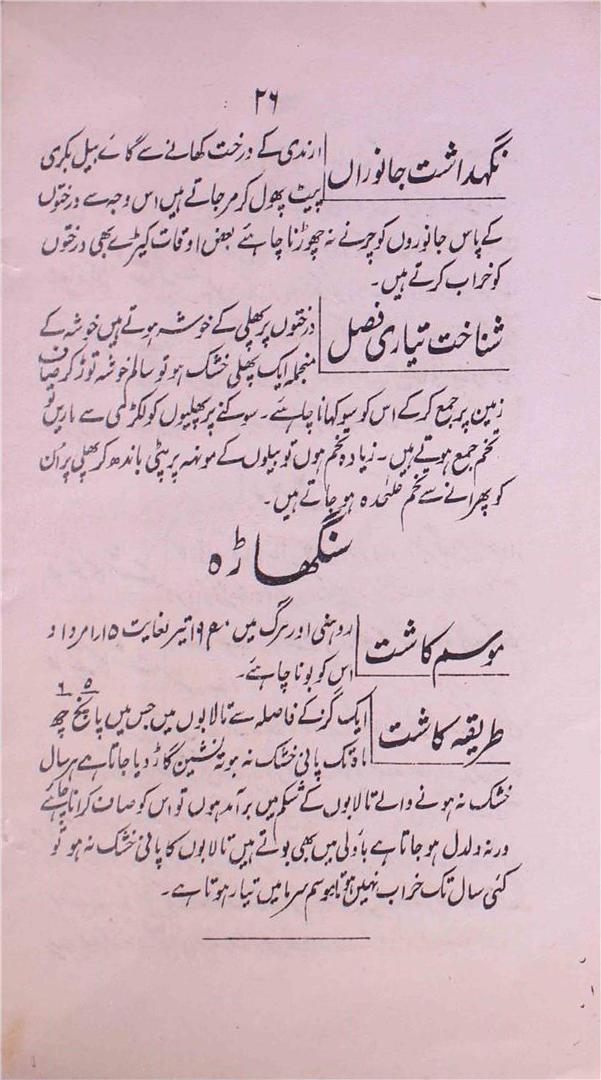 ۲۶
نگہداشت جانوراں
ارنڈی کے درخت کھانے سے گائے بیل بکری
پیٹ پھول کر مر جاتے ہیں اس وجہ سے درختوں
کے پاس جانوروں کو چرنے نہ چھوڑنا چاہئے بعض اوقات کیڑے بھی درختوں
کو خراب کرتے ہیں۔
شناخت تیاری فصل
درختوں پر پھلی کے خوشہ ہوتے ہیں خوشہ کے
منجملہ ایک پھلی خشک ہو تو سالم خوشہ توڑ کر صاف
زمین پر جمع کرکے اس کو سوکھانا چاہئے۔ سوکنے پر پھلیوں کو لکڑی سے ماریں تو
تخم جمع ہوتے ہیں۔ زیادہ تخم ہوں تو بیلوں کے مونہہ پر پٹی باندھ کر پھلی پر اُن
کو پھرانے سے تخم علٰحدہ ہو جاتے ہیں۔
سنگھاڑہ
موسم کاشت
روہنی اور مرگ میں تیر لغایت ۱۵؍امرداد
اس کو بونا چاہئے۔
طریقہ کاشت
ایک گز کے فاصلہ سے تالابوں میں جس میں پانچ چھ
۵ ۶
ماہ تک پانی خشک نہ ہو تہ نشین گاڑ دیا جاتا ہے ہر سال
خشک نہ ہونے والے تالابوں کے شکم میں برآمد ہوں تو اس کو صاف کرانا چاہئے
ورنہ دلدل ہو جاتا ہے باؤلی میں بھی بوتے ہیں تالابوں کا پانی خشک نہ ہو تو
کئی سال تک خراب نہیں ہوتا موسم سرما میں تیار ہوتا ہے۔